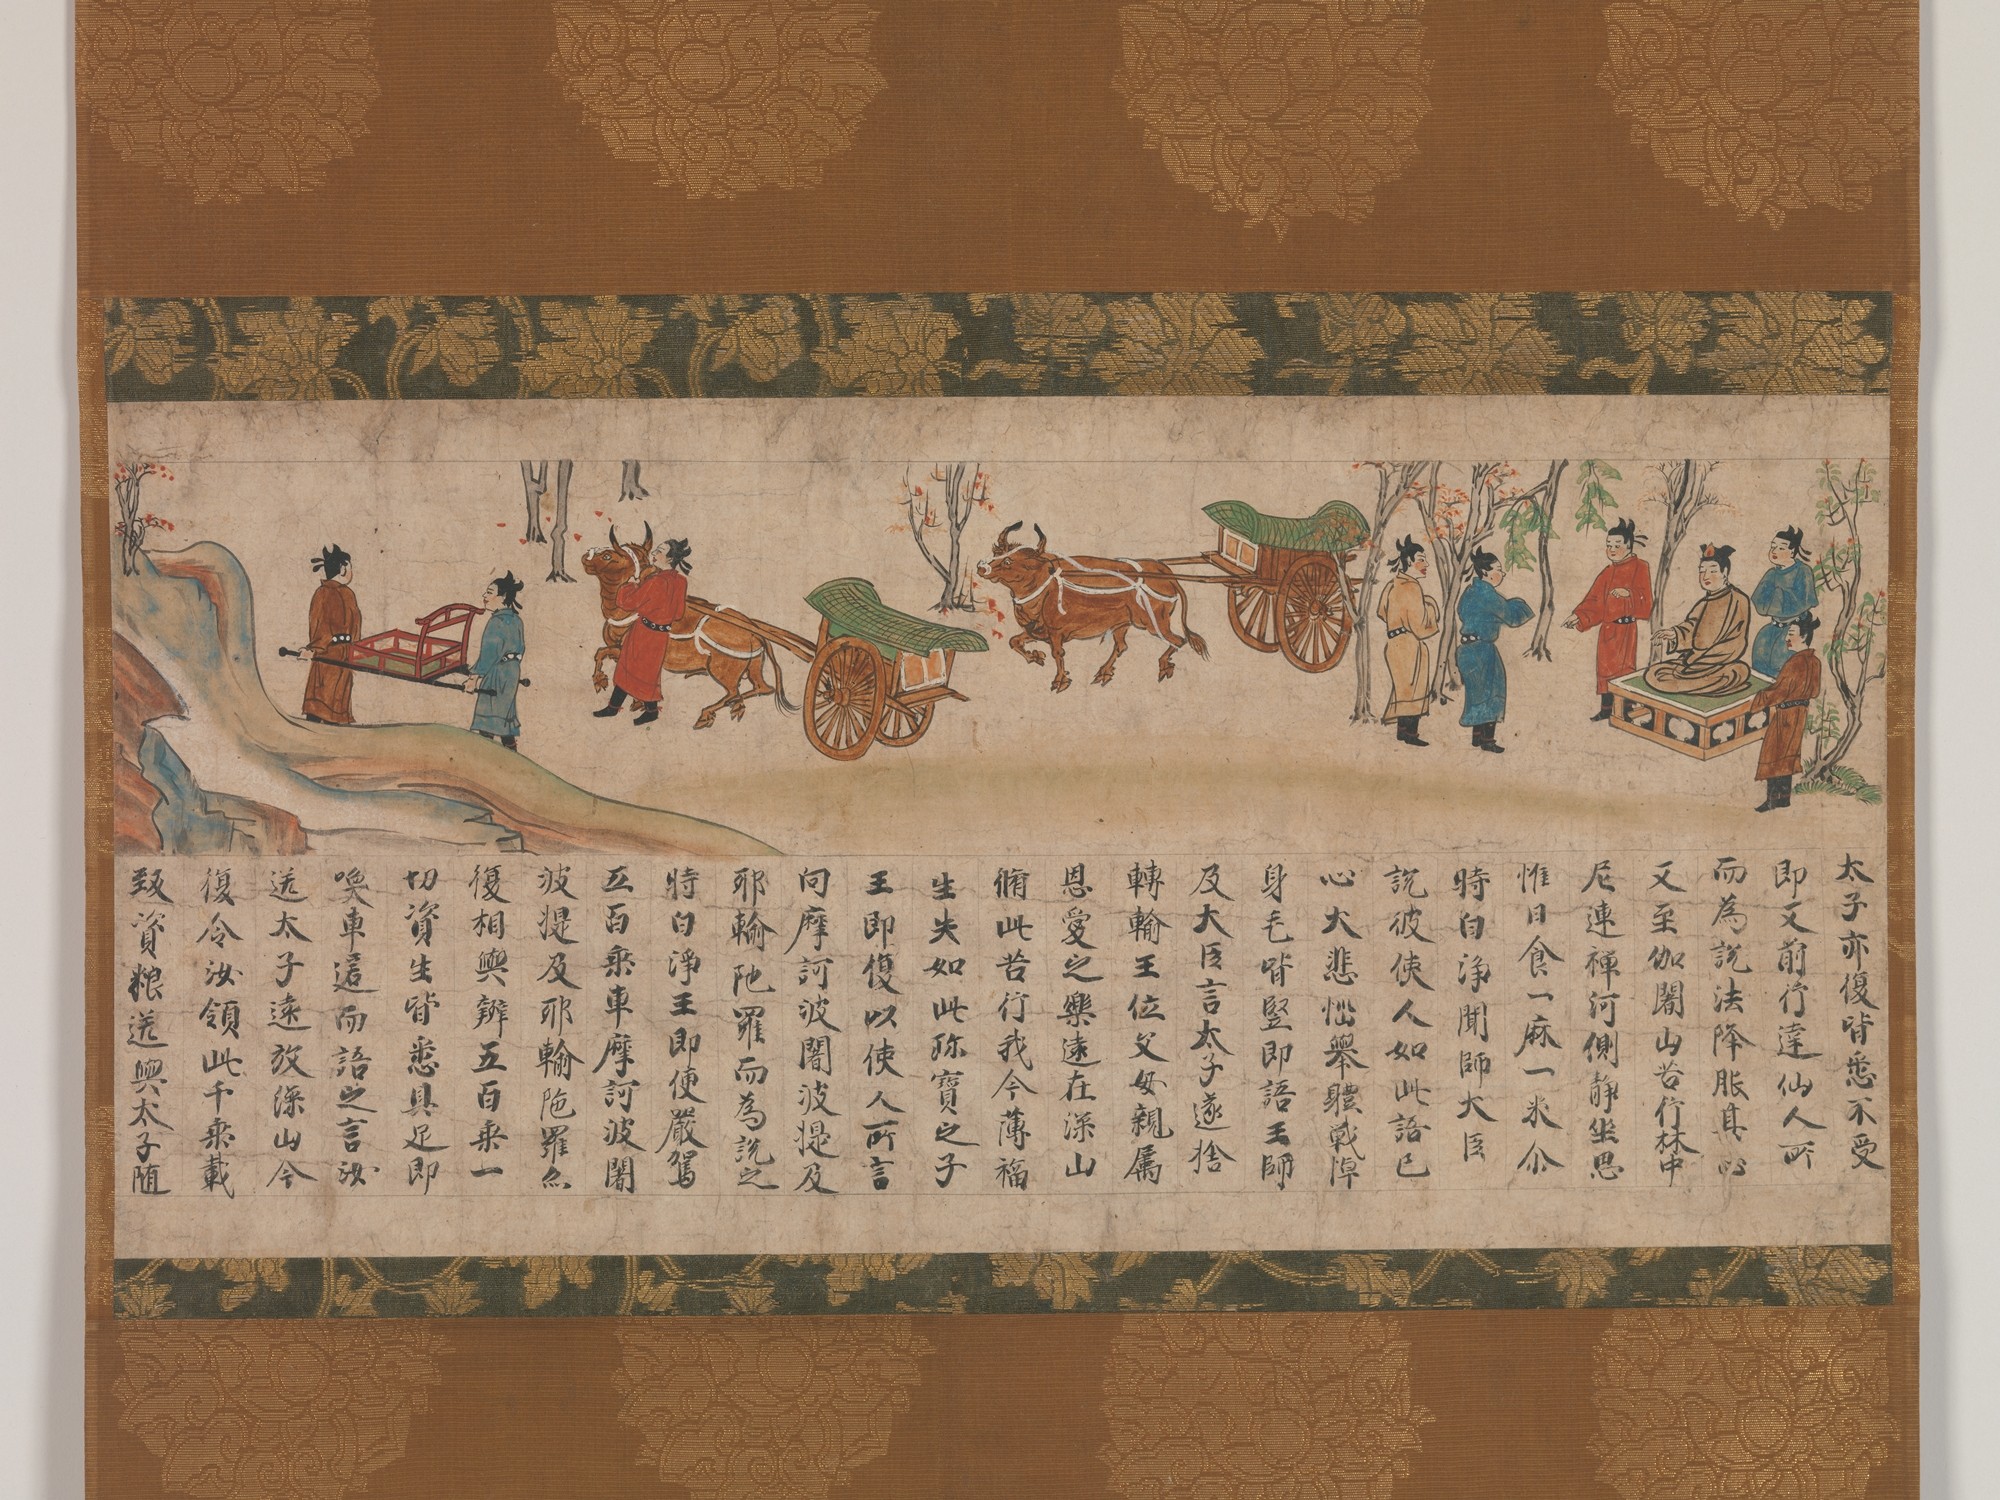 太子亦復皆悉不受
即又前行達仙人所
而為說法降脹其心
又至伽闍山苦行林中
尼連禪河側静坐思
惟日食一麻一米尒
時白淨聞師大臣
說彼使人如此語已
心大悲惱舉體戰悼
身毛皆竪即語王師
及大臣言太子遂捨
轉輪王位父母親属
恩愛之樂遠在深山
脩此苦行我今薄福
生失如此珎寶之子
王即復以使人所言
向摩訶波闍波提及
耶輸陁羅而為說之
時白淨王即便嚴駕
五百乗車摩訶波闍
波提及耶輸陁羅亦
復相與辦五百乗一
切資生皆悉具足即
喚車匿而語之言汝
送太子遠放深山今
復令汝領此千乗載
致資粮送與太子随